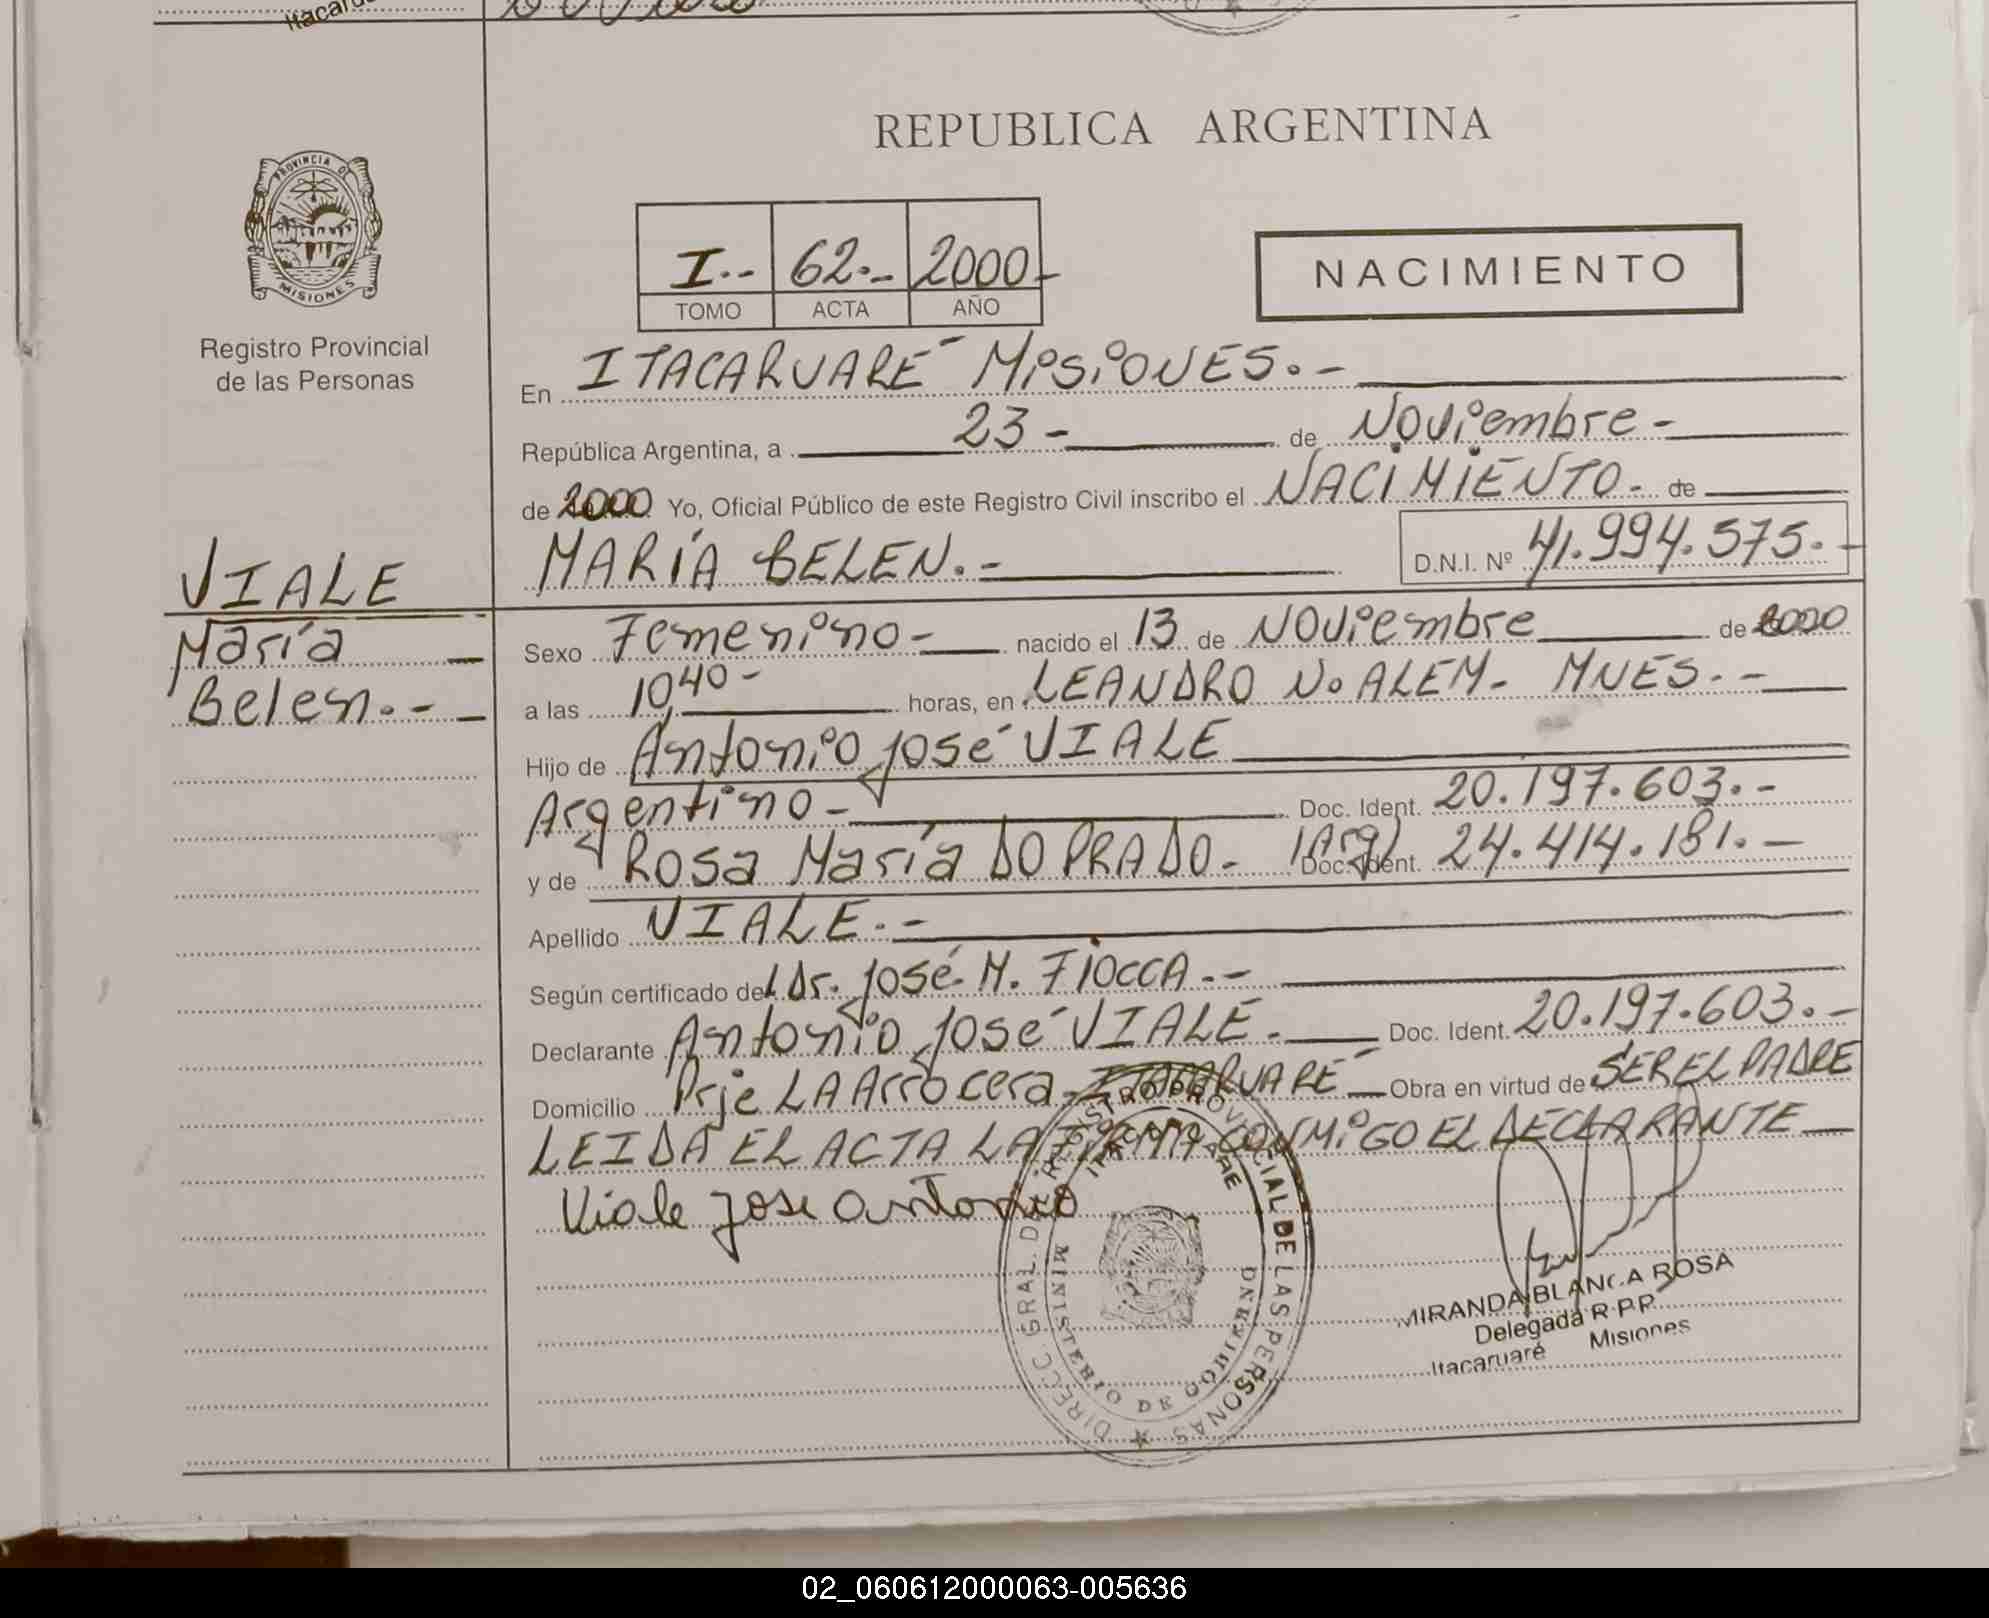 Itacarua
PROVINCIA DE
MISIONES
Registro Provincial
de las Personas
REPUBLICA ARGENTINA
I.-- 62.-- 2000-
TOMO ACTA AÑO
NACIMIENTO
En ITACARUARÉ MISIONES.-
República Argentina, a 23- de Noviembre-
de 2000 Yo, Oficial Público de este Registro Civil inscribo el NACIMIENTO- de
MARÍA BELEN.- D.N.I. Nº 41.994.575.-
VIALE
María
Belen.-
Sexo Femenino- nacido el 13 de Noviembre de 2000
a las 10,40- horas, en LEANDRO N. ALEM- MNES.-
Hijo de Antonio José VIALE
Argentino- Doc. Ident. 20.197.603.-
y de Rosa María DO PRADO- (Arg) Doc. Ident. 24.414.181.-
Apellido VIALE.-
Según certificado del Dr. José M. FIOCCA.-
Declarante Antonio José VIALE.- Doc. Ident. 20.197.603.-
Domicilio Prje LA Arrocera-ITACARUARÉ Obra en virtud de SER EL PADRE
LEIDA EL ACTA LA FIRMA CONMIGO EL DECLARANTE
Viale Jose Antonio
DIRECC. GRAL. DEL REGISTRO PROVINCIAL DE LAS PERSONAS
ITACARUARE
MINISTERIO DE GOBIERNO
MIRANDA BLANCA ROSA
Delegada R.P.P.
Itacaruaré Misiones
02_060612000063-005636